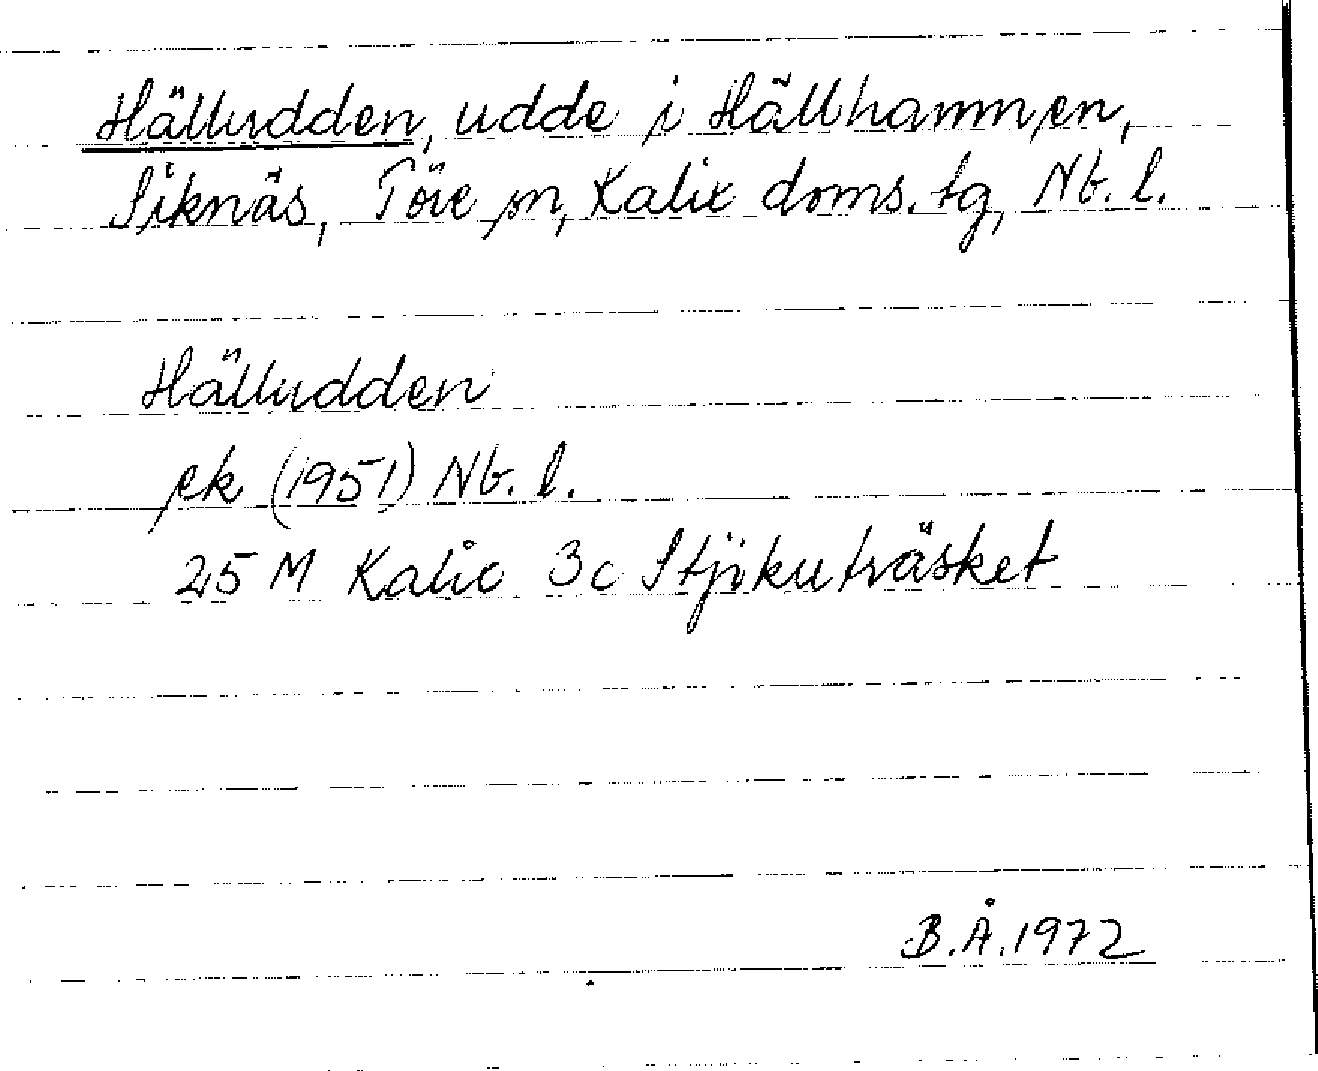 Hälludden, udde i Hällhamnen,
Siknäs, Töre sn, Kalix doms. tg, Nb. l.
Hälludden
ek (1951) Nb. l.
25 M Kalix 3c Stjikuträsket
B.Å.1972